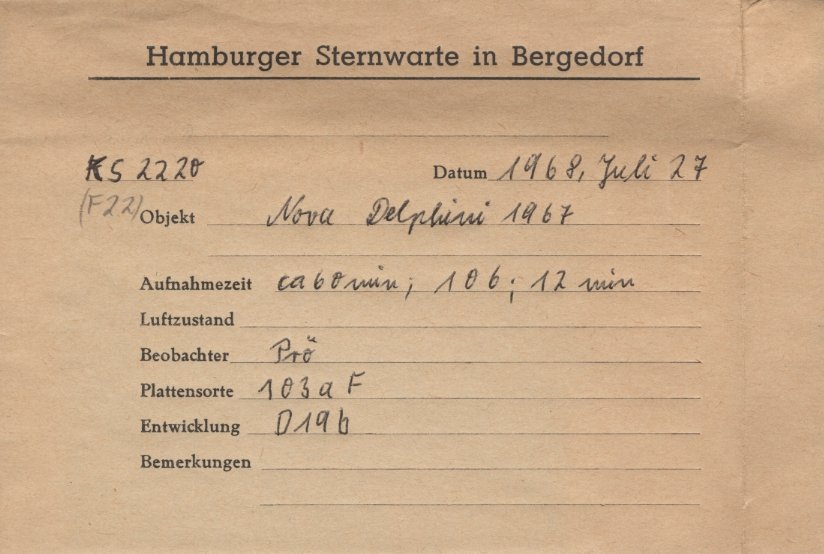 Hamburger Sternwarte in Bergedorf
KS 2220 Datum 1968, Juli 27
(F22) Objekt Nova Delphini 1967
Aufnahmezeit ca 60 min; 106; 12 min
Luftzustand
Beobachter Prö
Plattensorte 103a F
Entwicklung D19b
Bemerkungen